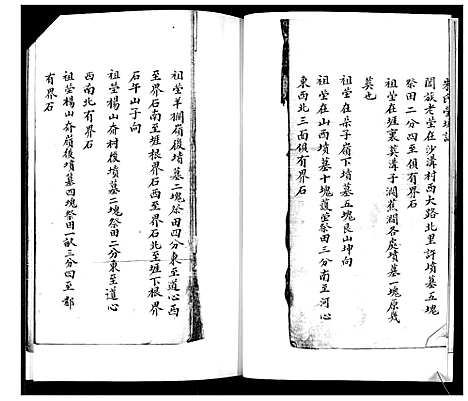 宋氏塋地誌
閤族老塋在沙溝村西大路北里許墳墓五塊
祭田二分四至俱有界石
祖塋在堐裏英溝子澗蕉澗各處墳墓一塊原幾
英也
祖塋在朵子嶺下墳墓五塊艮山坤向
祖塋在山西墳墓十塊護塋祭田三分南至河心
東西北三面俱有界石
祖塋羊攔嶺後墳墓二塊祭田四分東至道心西
至界石南至堐根界石西至界石北至堐下根界
石午山子向
祖塋楊山夼村後墳墓二塊祭田二分東至道心
西南北有界石
祖塋楊山夼嶺後墳墓四塊祭田一畝三分四至都
有界石